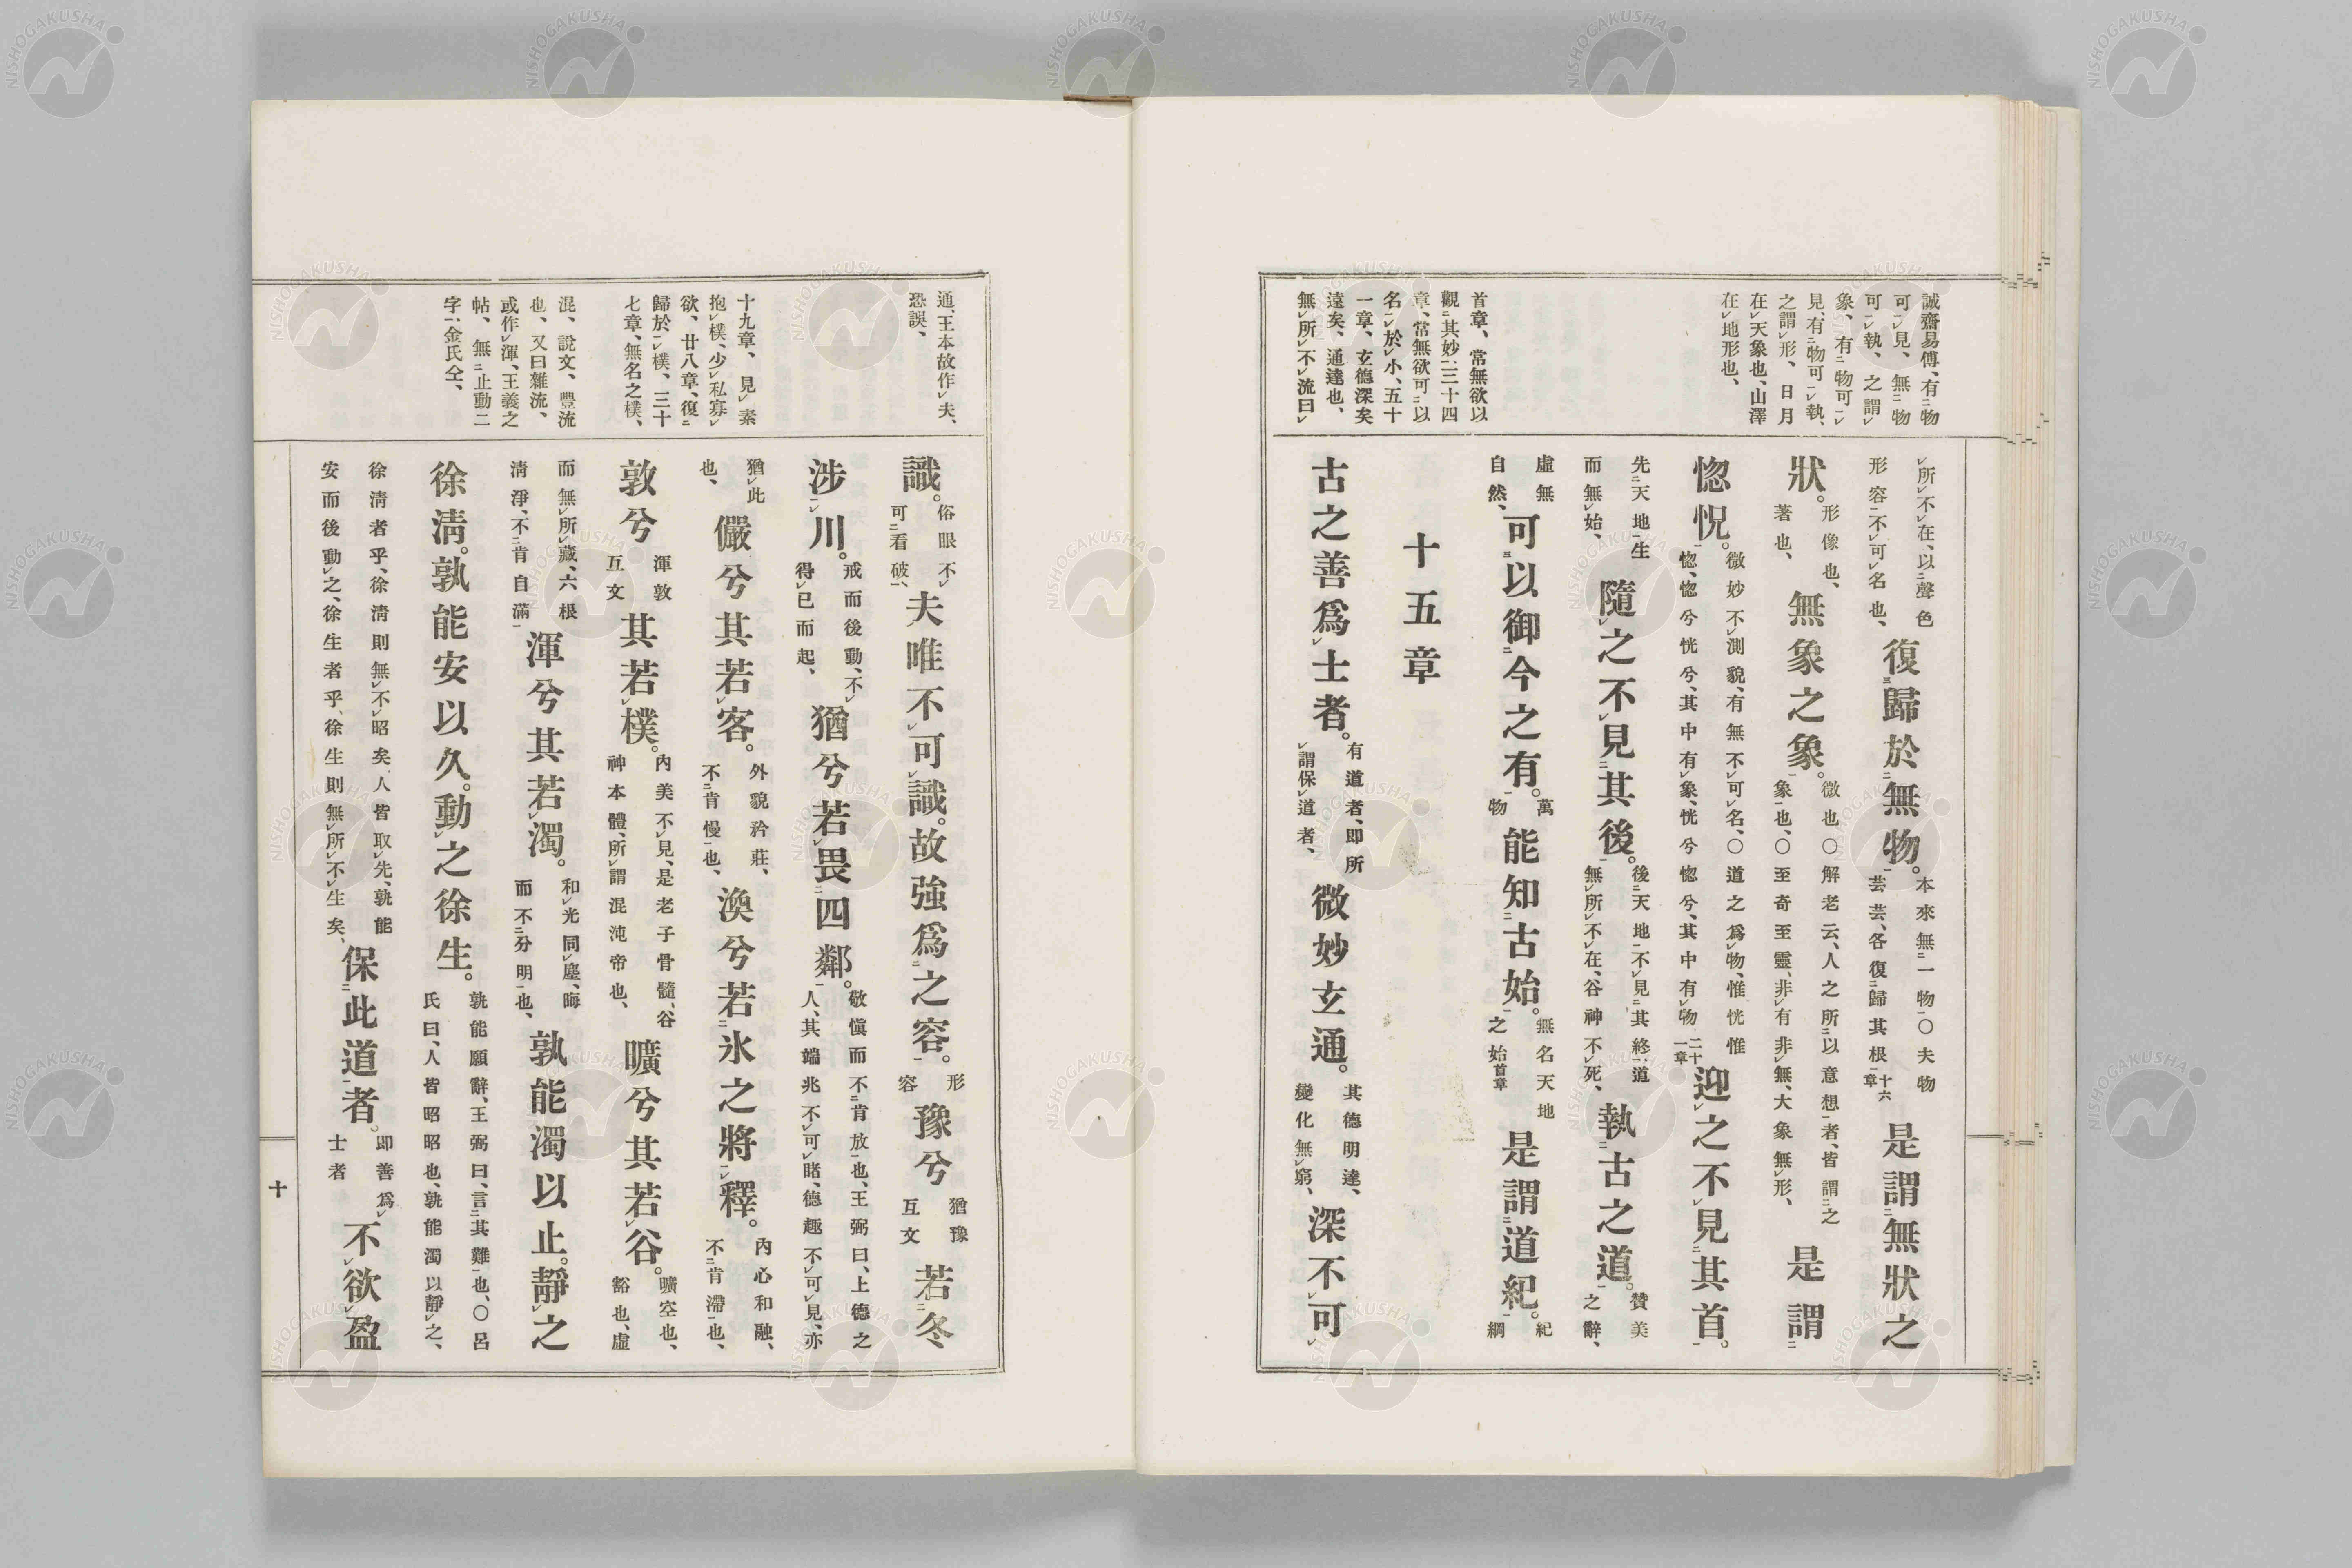 誠齋易傳、有物
可見、無物
可執、之謂
象、有物可
見、有物可執、
之謂形、日月
在天象也、山澤
在地形也、
首章、常無欲以
觀其妙、三十四
章、常無欲可以
名於小、五十
一章、玄德深矣
遠矣、通達也、
無所不流曰
所不在、以聲色
形容不可名也、
復歸於無物。本來無一物○夫物
芸芸、各復歸其根十六章
是謂無狀之
狀。形像也、
著也、
無象之象。微也○解老云、人之所以意想者、皆謂之
象也、○至奇至靈、非有非無、大象無形、
是謂
惚怳。微妙不測貌、有無不可名、○道之爲物、惟恍惟
惚、惚兮恍兮、其中有象、恍兮惚兮、其中有物二十一章
迎之不見其首。
先天地生
而無始、
隨之不見其後。後天地不見其終、道
無所不在、谷神不死、
執古之道。贊美
之辭、
以御今之有。萬
物
能知古始。無名天地
之始首章
是謂道紀。紀
綱
虛無
自然、
可
十五章
古之善爲士者。有道者、即所
謂保道者、
微妙玄通。其德明達、
變化無窮、
深不可
通、王本故作夫、
恐誤、
十九章、見素
抱樸、少私寡
欲、廿八章、復
歸於樸、三十
七章、無名之樸、
混、說文、豐流
也、又曰雜流、
或作渾、王義之
帖、無止動二
字、金氏仝、
識。俗眼不
可看破、
夫唯不可識。故強爲之容。形
容
豫兮猶豫
互文
若冬
涉川。戒而後動、不
得已而起、
猶兮若畏四鄰。敬愼而不肯放也、王弼曰、上德之
人、其端兆不可睹、德趣不可見、亦
猶此
也、
儼兮其若客。外貌矜莊、
不肯慢也、
渙兮若氷之將釋。內心和融、
不肯滯也、
敦兮渾敦
互文
其若樸。內美不見、是老子骨髓、谷
神本體、所謂混沌帝也、
曠兮其若谷。曠空也、
豁也、虛
而無所藏、六根
淸淨、不肯自滿
渾兮其若濁。和光同塵、晦
而不分明也、
孰能濁以止。靜之
徐淸。孰能安以久。動之徐生。孰能願辭、王弼曰、言其難也、○呂
氏曰、人皆昭昭也、孰能濁以靜之、
徐淸者乎、徐淸則無不昭矣、人皆取先、孰能
安而後動之、徐生者乎、徐生則無所不生矣、
保此道者。即善爲
士者
不欲盈
十